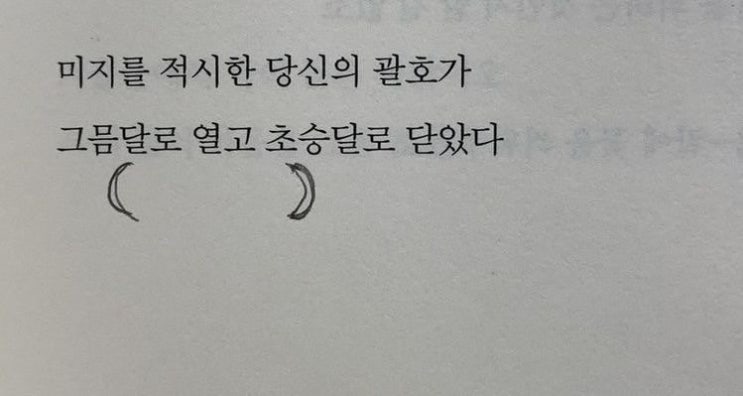 미지를 적시한 당신의 괄호가
그믐달로 열고 초승달로 닫았다
(      )